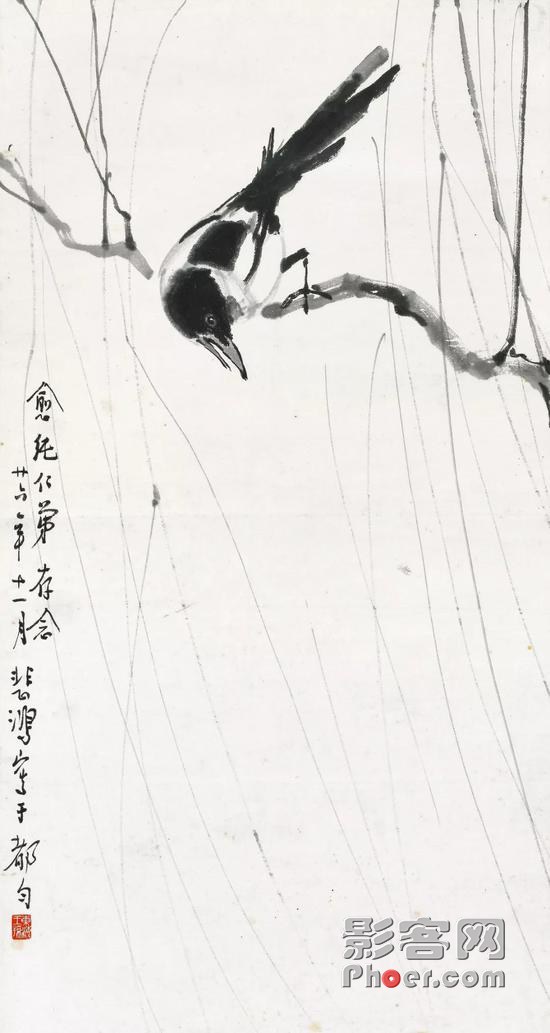 愈純仁弟存念
廿六年十一月 悲鴻寫于都勻
影客网
Phoer.com